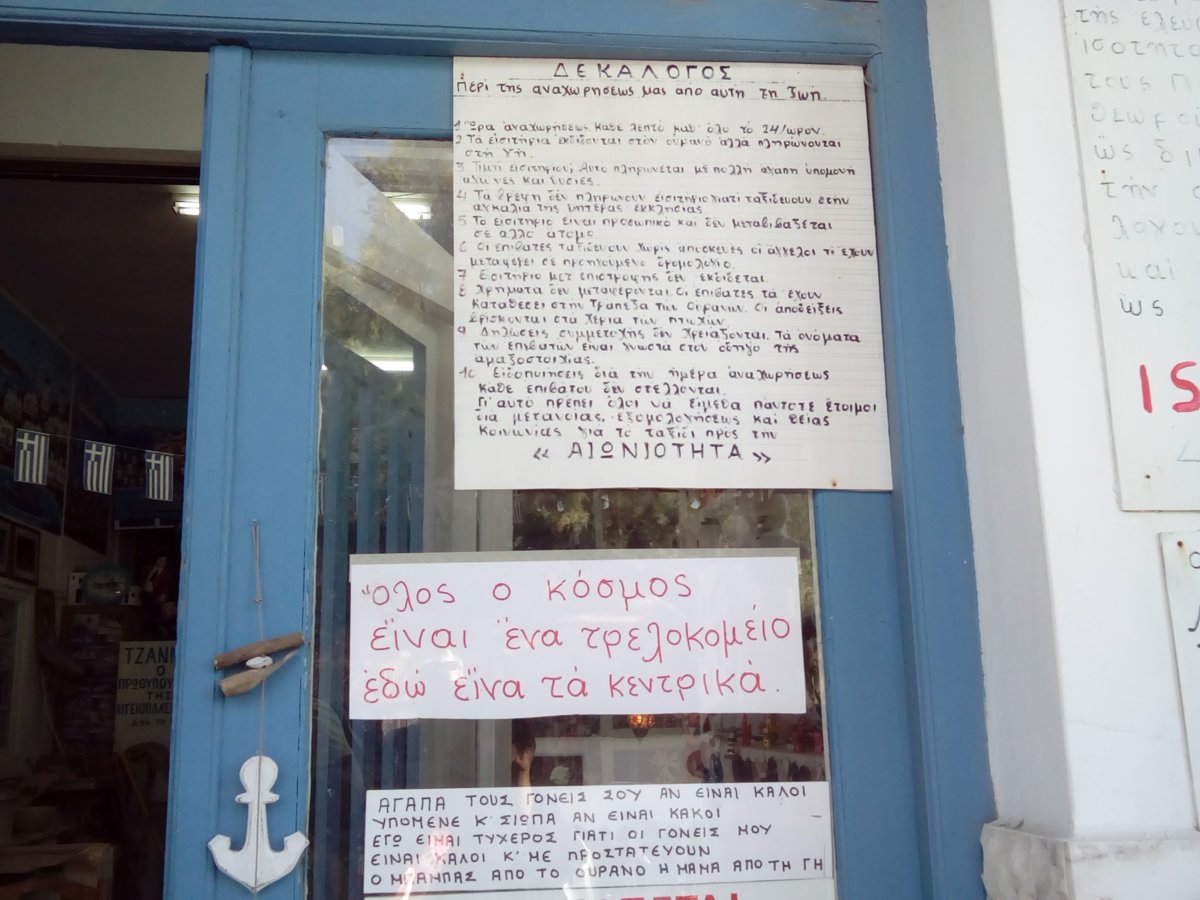 ΔΕΚΑΛΟΓΟΣ
Περι της αναχωρησεως μας απο αυτη τη Ζωη.
1 Ὥρα ἀναχωρήσεως. Καθε λεπτό καθ' ὅλο τὸ 24/ωρον.
2 Τὰ εἰσιτήρια ἐκδίδονται στὸν οὐρανὸ ἀλλὰ πληρώνονται
στὴ Γῆ.
3. Τιμὴ εἰσιτηριου; Αυτο πληρωνεται μὲ πολλὴ αγαπη ὑπομονὴ
αγωνες και θυσιες.
4 Τὰ βρεφη δὲν πληρωνουν εισιτηριο γιατι ταξιδευουν στην
αγκαλια της μητερας εκκλησιας
5 Το εισιτηριο ειναι προσωπικο και δεν μεταβιβαζεται
σε αλλο ατομο.
6 Οι επιβατες ταξιδευουν χωρις αποσκευες οἱ ἀγγελοι τὶ ἔχουν
μεταφερει σε προηγουμενο δρομολογιο.
7 Εισιτηριο μετ επιστροφης δὲν ἐκδιδεται.
8 Χρηματα δεν μεταφερονται. Οι ἐπιβατες τὰ ἔχουν
καταθεσει στὴν Τραπεζα τῶν Οὐρανων. Οἱ ἀποδείξεις
βρισκονται στα χερια τῶν πτωχων.
9 Δηλώσεις συμμετοχῆς δὲν χρειάζονται. Τὰ ὀνόματα
τῶν επιβατων εἰναι γνωστα στον οδηγο τῆς
αμαξοστοιχιας.
10 Εἰδοποιήσεις διὰ τὴν ἡμέρα ἀναχωρήσεως
καθε επιβατου δεν στελλονται.
Γι' αυτο πρεπει ὅλοι νὰ εἴμεθα πάντοτε ἕτοιμοι
διὰ μετανοίας, ἐξομολογήσεως καὶ θείας
κοινωνίας γιὰ τὸ ταξίδι πρὸς τὴν
« ΑΙΩΝΙΟΤΗΤΑ »
Ὅλος ο κόσμος
εἴναι ἕνα τρελοκομείο
ἐδώ εἴνα τὰ κεντρικά.
ΑΓΑΠΑ ΤΟΥΣ ΓΟΝΕΙΣ ΣΟΥ ΑΝ ΕΙΝΑΙ ΚΑΛΟΙ
ΥΠΟΜΕΝΕ Κ' ΣΙΩΠΑ ΑΝ ΕΙΝΑΙ ΚΑΚΟΙ
ΕΓΩ ΕΙΜΑΙ ΤΥΧΕΡΟΣ ΓΙΑΤΙ ΟΙ ΓΟΝΕΙΣ ΜΟΥ
ΕΙΝΑΙ ΚΑΛΟΙ Κ' ΜΕ ΠΡΟΣΤΑΤΕΥΟΥΝ
Ο ΜΠΑΜΠΑΣ ΑΠΟ ΤΟ ΟΥΡΑΝΟ Η ΜΑΜΑ ΑΠΟ ΤΗ ΓΗ
ΤΖΑΝΝ
Ο
ΠΡΩΘΥΠΟΥ
ΤΗΣ
ΑΓΓΕΙΟΠΛΑΣ
ΑΠΟ ΤΟ
τῆς ελευ
ισοτητο
τους π
θεωρο
ὡς δι
τὴν
λογον
καὶ
ὡς